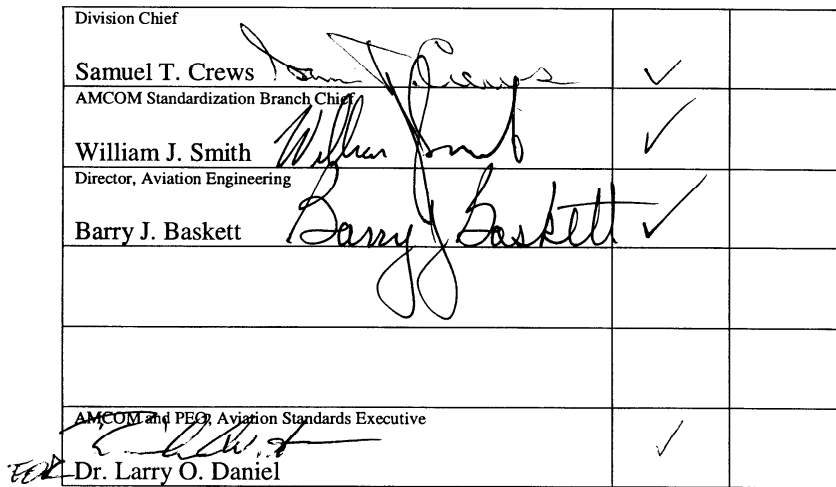 Division Chief
Samuel T. Crews Sam T. Crews ✓
AMCOM Standardization Branch Chief
William J. Smith William J Smith ✓
Director, Aviation Engineering
Barry J. Baskett Barry J Baskett ✓
AMCOM and PEO, Aviation Standards Executive
FOR Dr. Larry O. Daniel ✓